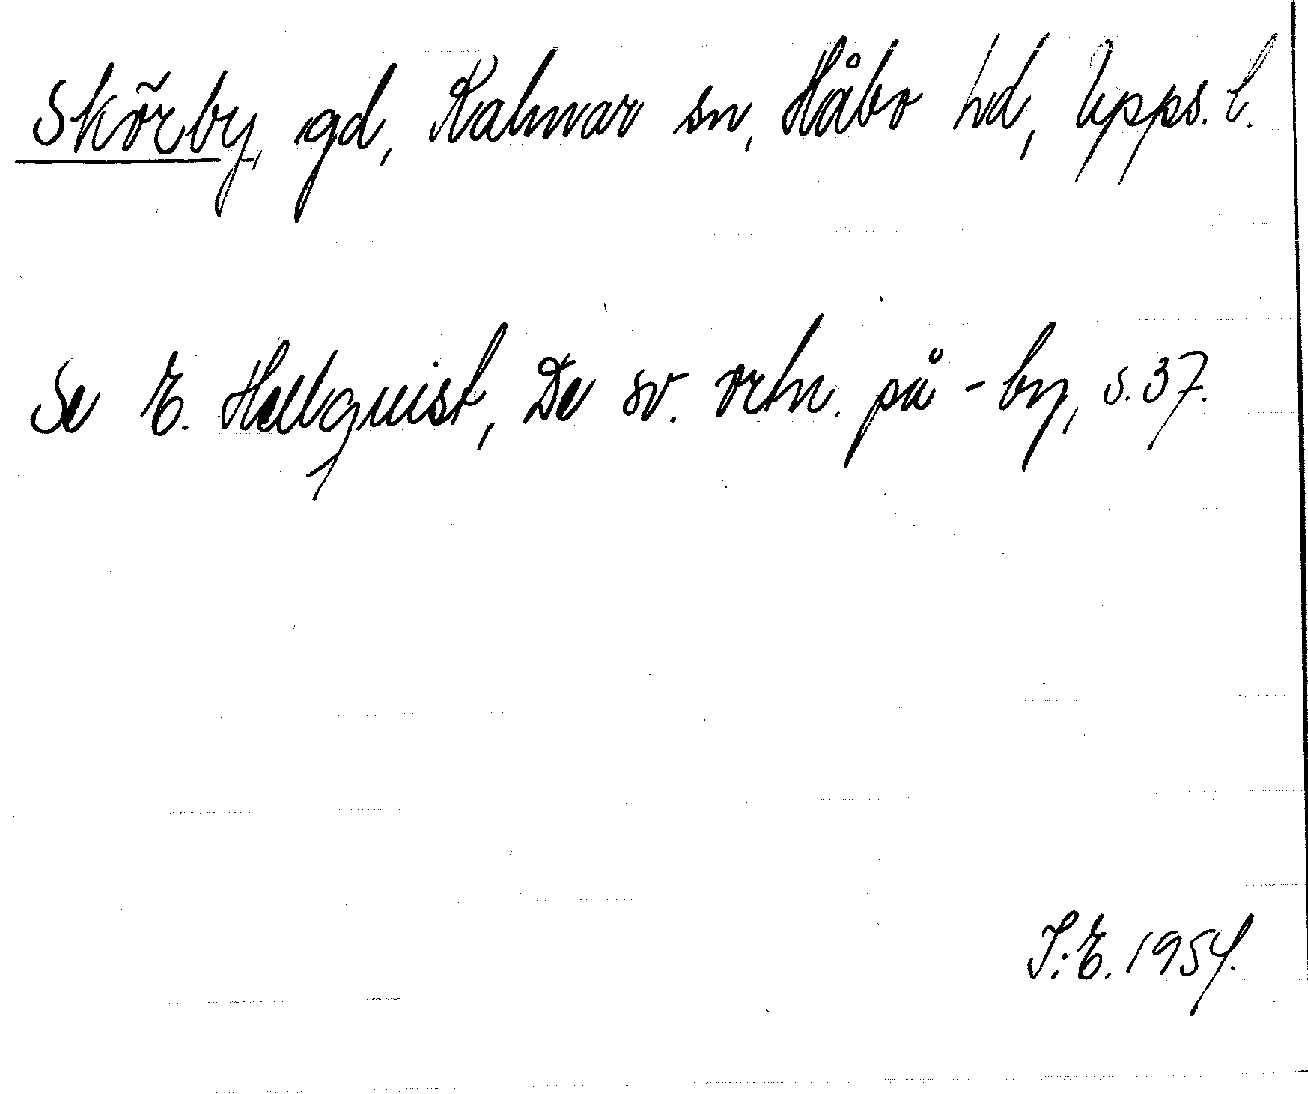 Skörby, gd, Kalmar sn, Håbo hd, Upps. l.
Se E. Hellquist, De sv. ortn. på -by, s. 37.
I. E. 1954.